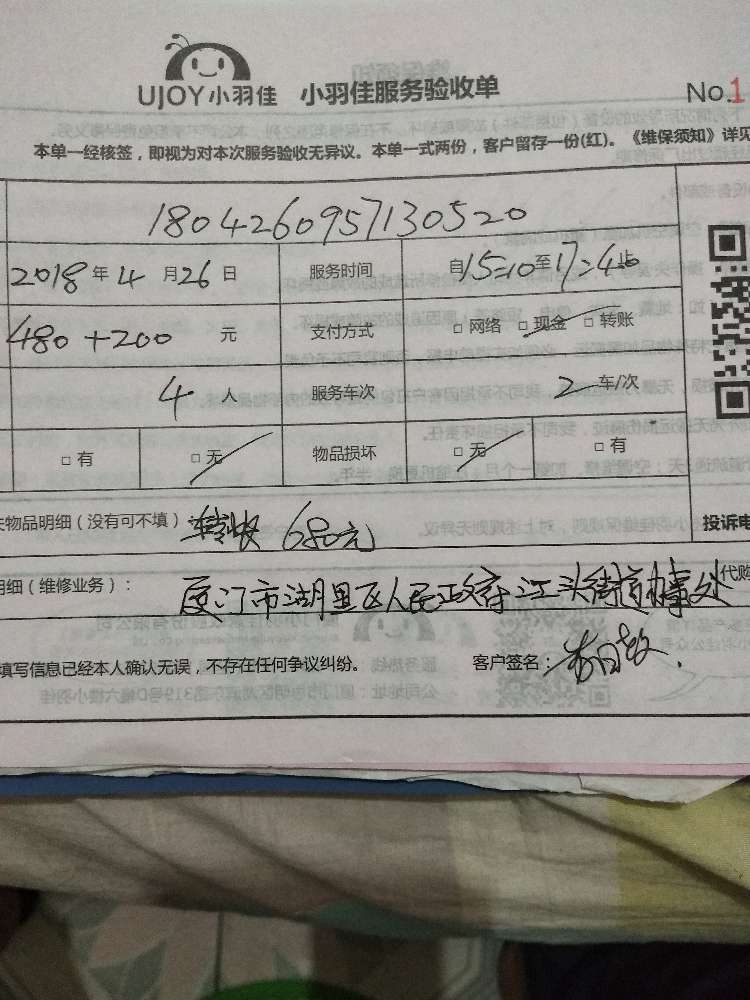 UJOY小羽佳 小羽佳服务验收单 No.1
本单一经核签，即视为对本次服务验收无异议。本单一式两份，客户留存一份(红)。《维保须知》详见
1804260957130520
2018年4月26日 服务时间 自15:10至17:46止
480+200 元 支付方式 □网络 □现金 □转账
4人 服务车次 2车/次
□有 □无 物品损坏 □无 □有
物品明细（没有可不填）： 转收 680元 投诉电
明细（维修业务）： 厦门市湖里区人民政府江头街道办事处 代购
填写信息已经本人确认无误，不存在任何争议纠纷。 客户签名：